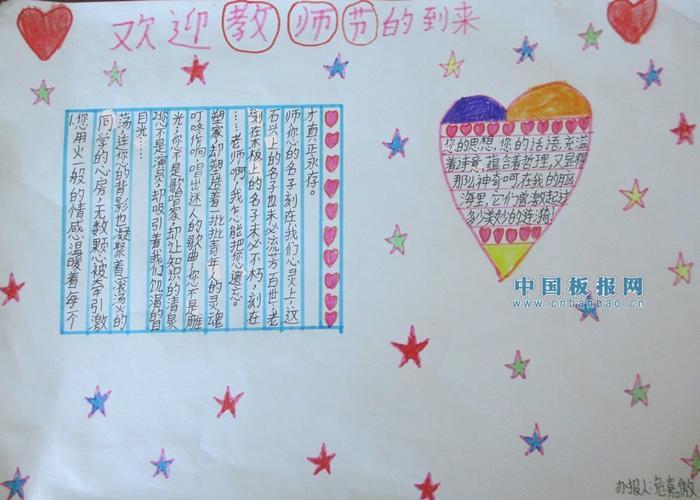 欢迎教师节的到来
1.您用火一般的情感温暖着每一个
同学的心房,无数颗心被牵引激
荡,连你的背影也凝聚着滚汤火的
目光…
您不是演员,却吸引着我们饥渴的目
光;您不是歌唱家,却让知识的清泉
叮咚作响,唱出迷人的歌曲您不是雕
塑家却塑造着一批批青年人的灵魂
……老师啊,我怎能把您遗忘。
刻在木板上的名子未必不朽,刻在
石头上的名子也未必流芳百世;老
师您的名子刻在我们心灵上,这
才真正永存。
您的思想,您的话语,充溢
着诗意,蕴含着哲理,又显得
那么神奇呵,在我的脑
海里,它们曾激起过
多少美妙的涟漪
中国板报网
www.cnbanbao.cn
办报人:危嘉